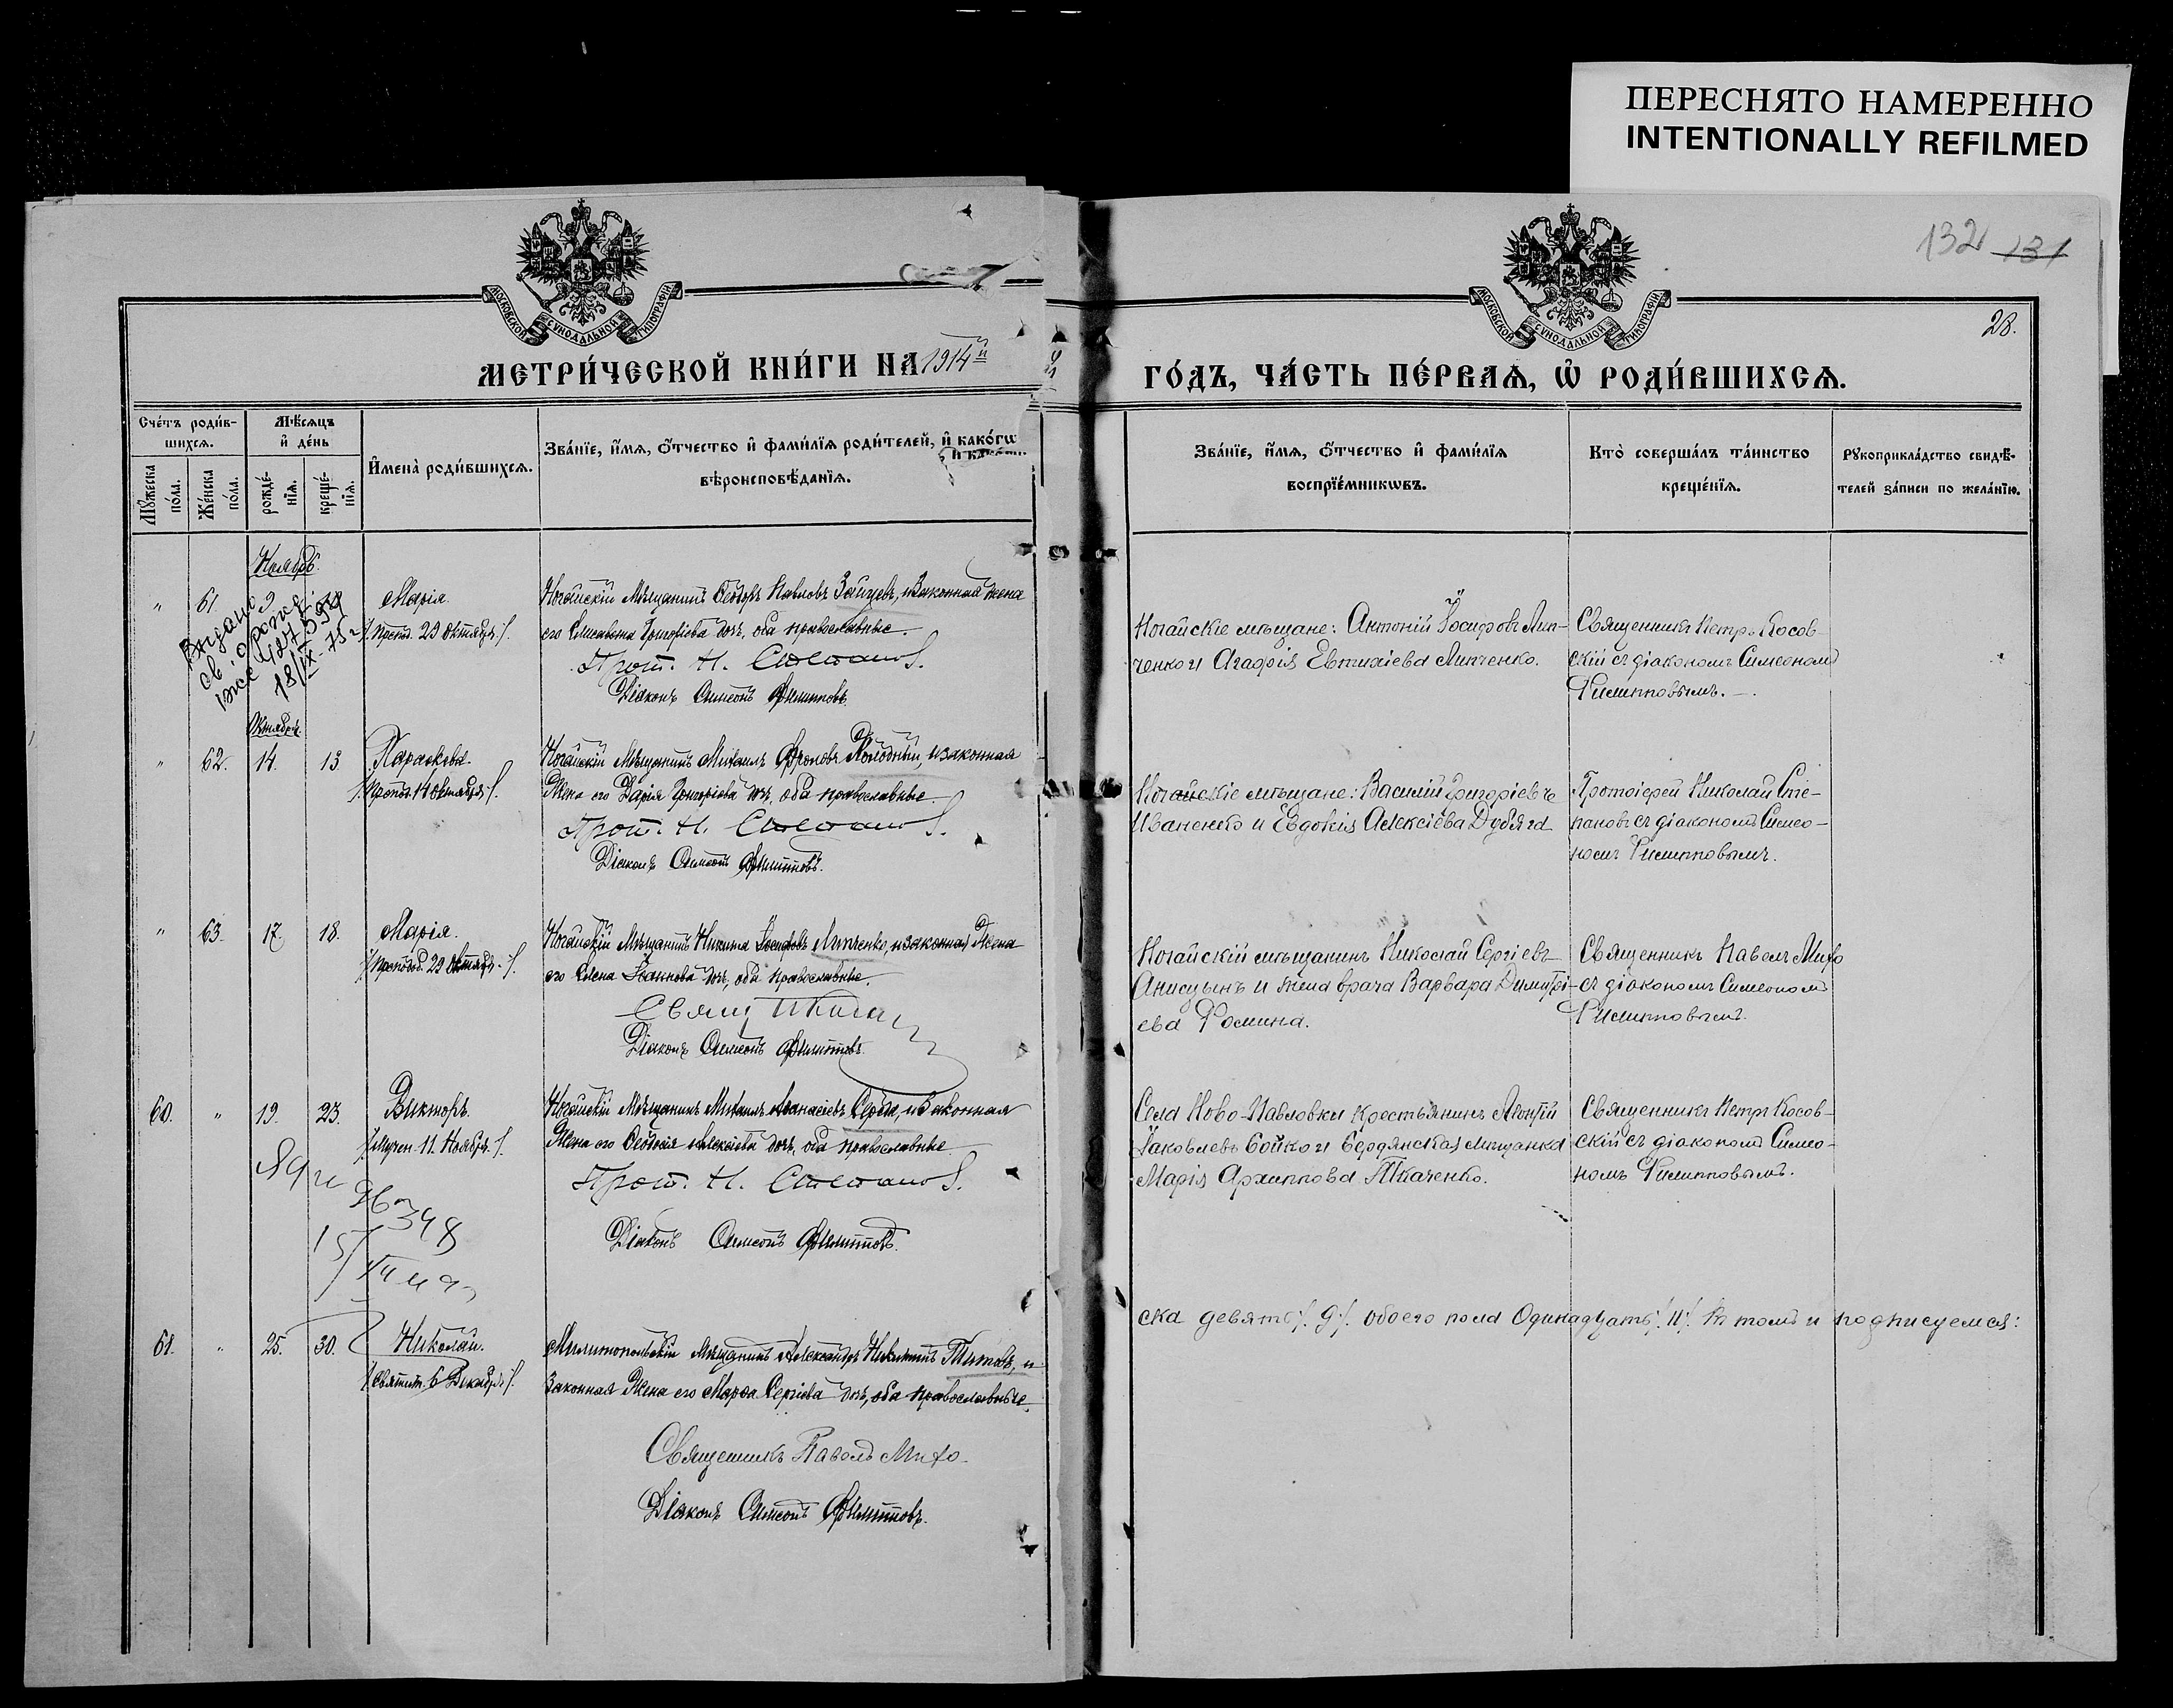 ПЕРЕСНЯТО НАМЕРЕННО
INTENTIONALLY REFILMED
132 131
28.
МОСКОВСКОЙ СѴНОДАЛЬНОЙ ТИПОГРАФІИ
МОСКОВСКОЙ СѴНОДАЛЬНОЙ ТИПОГРАФІИ
МЕТРИ́ЧЕСКОЙ КНИ́ГИ НА 1914й
ГО́ДЪ, ЧА́СТЬ ПЕ́РВАѦ, Ѡ РОДИ́ВШИХСѦ.
Сче́тъ роди́в-
шихсѧ.
Мѣ́сѧцъ
и҆ де́нь
Мꙋ́жеска
по́ла.
Же́нска
по́ла.
рожде́-
нїѧ.
креще́-
нїѧ.
И҆мена̀ роди́вшихсѧ.
Зва́нїе, и҆́мѧ, ѻ҆́тчество и҆ фами́лїѧ роди́телей, и҆ како́гѡ
вѣроисповѣ́данїѧ.
Зва́нїе, и҆́мѧ, ѻ҆́тчество и҆ фами́лїѧ
воспрїе́мникѡвъ.
Кто̀ соверша́лъ та́инство
креще́нїѧ.
Рꙋкоприкла́дство свидѣ́-
телей за́писи по жела́нїю.
Ноябрь.
" 61. 9 Марія.
/: Препод. 29 Октября :/.
Ногайскій Мѣщанинъ Ѳеодоръ Павловъ Зайцевъ, и законная жена
его Елисавета Григоріева дочь, оба православные.
Прот. Н. Степановъ.
Діаконъ Симеонъ Филипповъ.
Ногайскіе мѣщане: Антоній Іосифовъ Лип-
ченко и Агафія Евтихіева Липченко.
Священникъ Петръ Косов-
скій съ діакономъ Симеономъ
Филипповымъ.
18/IX-75г
Октября
" 62. 14. 13. Параскева.
/: Препод. 14 Октября :/.
Ногайскій Мѣщанинъ Михаилъ Холодный, и законная
Жена его Дарія Григоріева дочь, оба православные.
Прот. Н. Степановъ.
Діаконъ Симеонъ Филипповъ.
Ногайскіе мѣщане: Василій Григоріевъ
Иваненко и Евдокія Алексіева Дубяга
Протоіерей Николай Сте-
пановъ съ діакономъ Симео-
номъ Филипповымъ.
" 63. 17. 18. Марія.
/: Препод. 29 Октября :/.
Ногайскій Мѣщанинъ Никита Іосифовъ Липченко, и законная Жена
его Елена Іоаннова дочь, оба православные.
Свящ
Діаконъ Симеонъ Филипповъ.
Ногайскій мѣщанинъ Николай Сергіевъ
Анисцынъ и жена врача Варвара Димитрі-
ева Фомина.
Священникъ Павелъ Михо
съ діакономъ Симеономъ
Филипповымъ.
60. " 19. 23. Викторъ.
/: Мучен. 11 Ноября :/.
Ногайскій Мѣщанинъ Михаилъ Аѳанасіевъ Серый, и Законная
Жена его Ѳеодосія Алексіева дочь, оба православные
Прот. Н. Степановъ.
Діаконъ Симеонъ Филипповъ.
Села Ново-Павловки крестьянинъ Леонтій
Іаковлевъ Бойко и Бердянская мѣщанка
Марія Архиппова Ткаченко.
Священникъ Петръ Косов-
скій съ діакономъ Симео-
номъ Филипповымъ.
ска девять /:9:/. обоего пола Одинадцать /:11:/. Въ томъ и подписуемся:
61. " 25. 30. Николай.
/: Святит. 6 Декабря :/.
Мелитопольскій Мѣщанинъ Александръ Никитинъ Титовъ, и
Законная Жена его Марѳа Сергіева дочь, оба православные.
Священникъ Павелъ Михо.
Діаконъ Симеонъ Филипповъ.